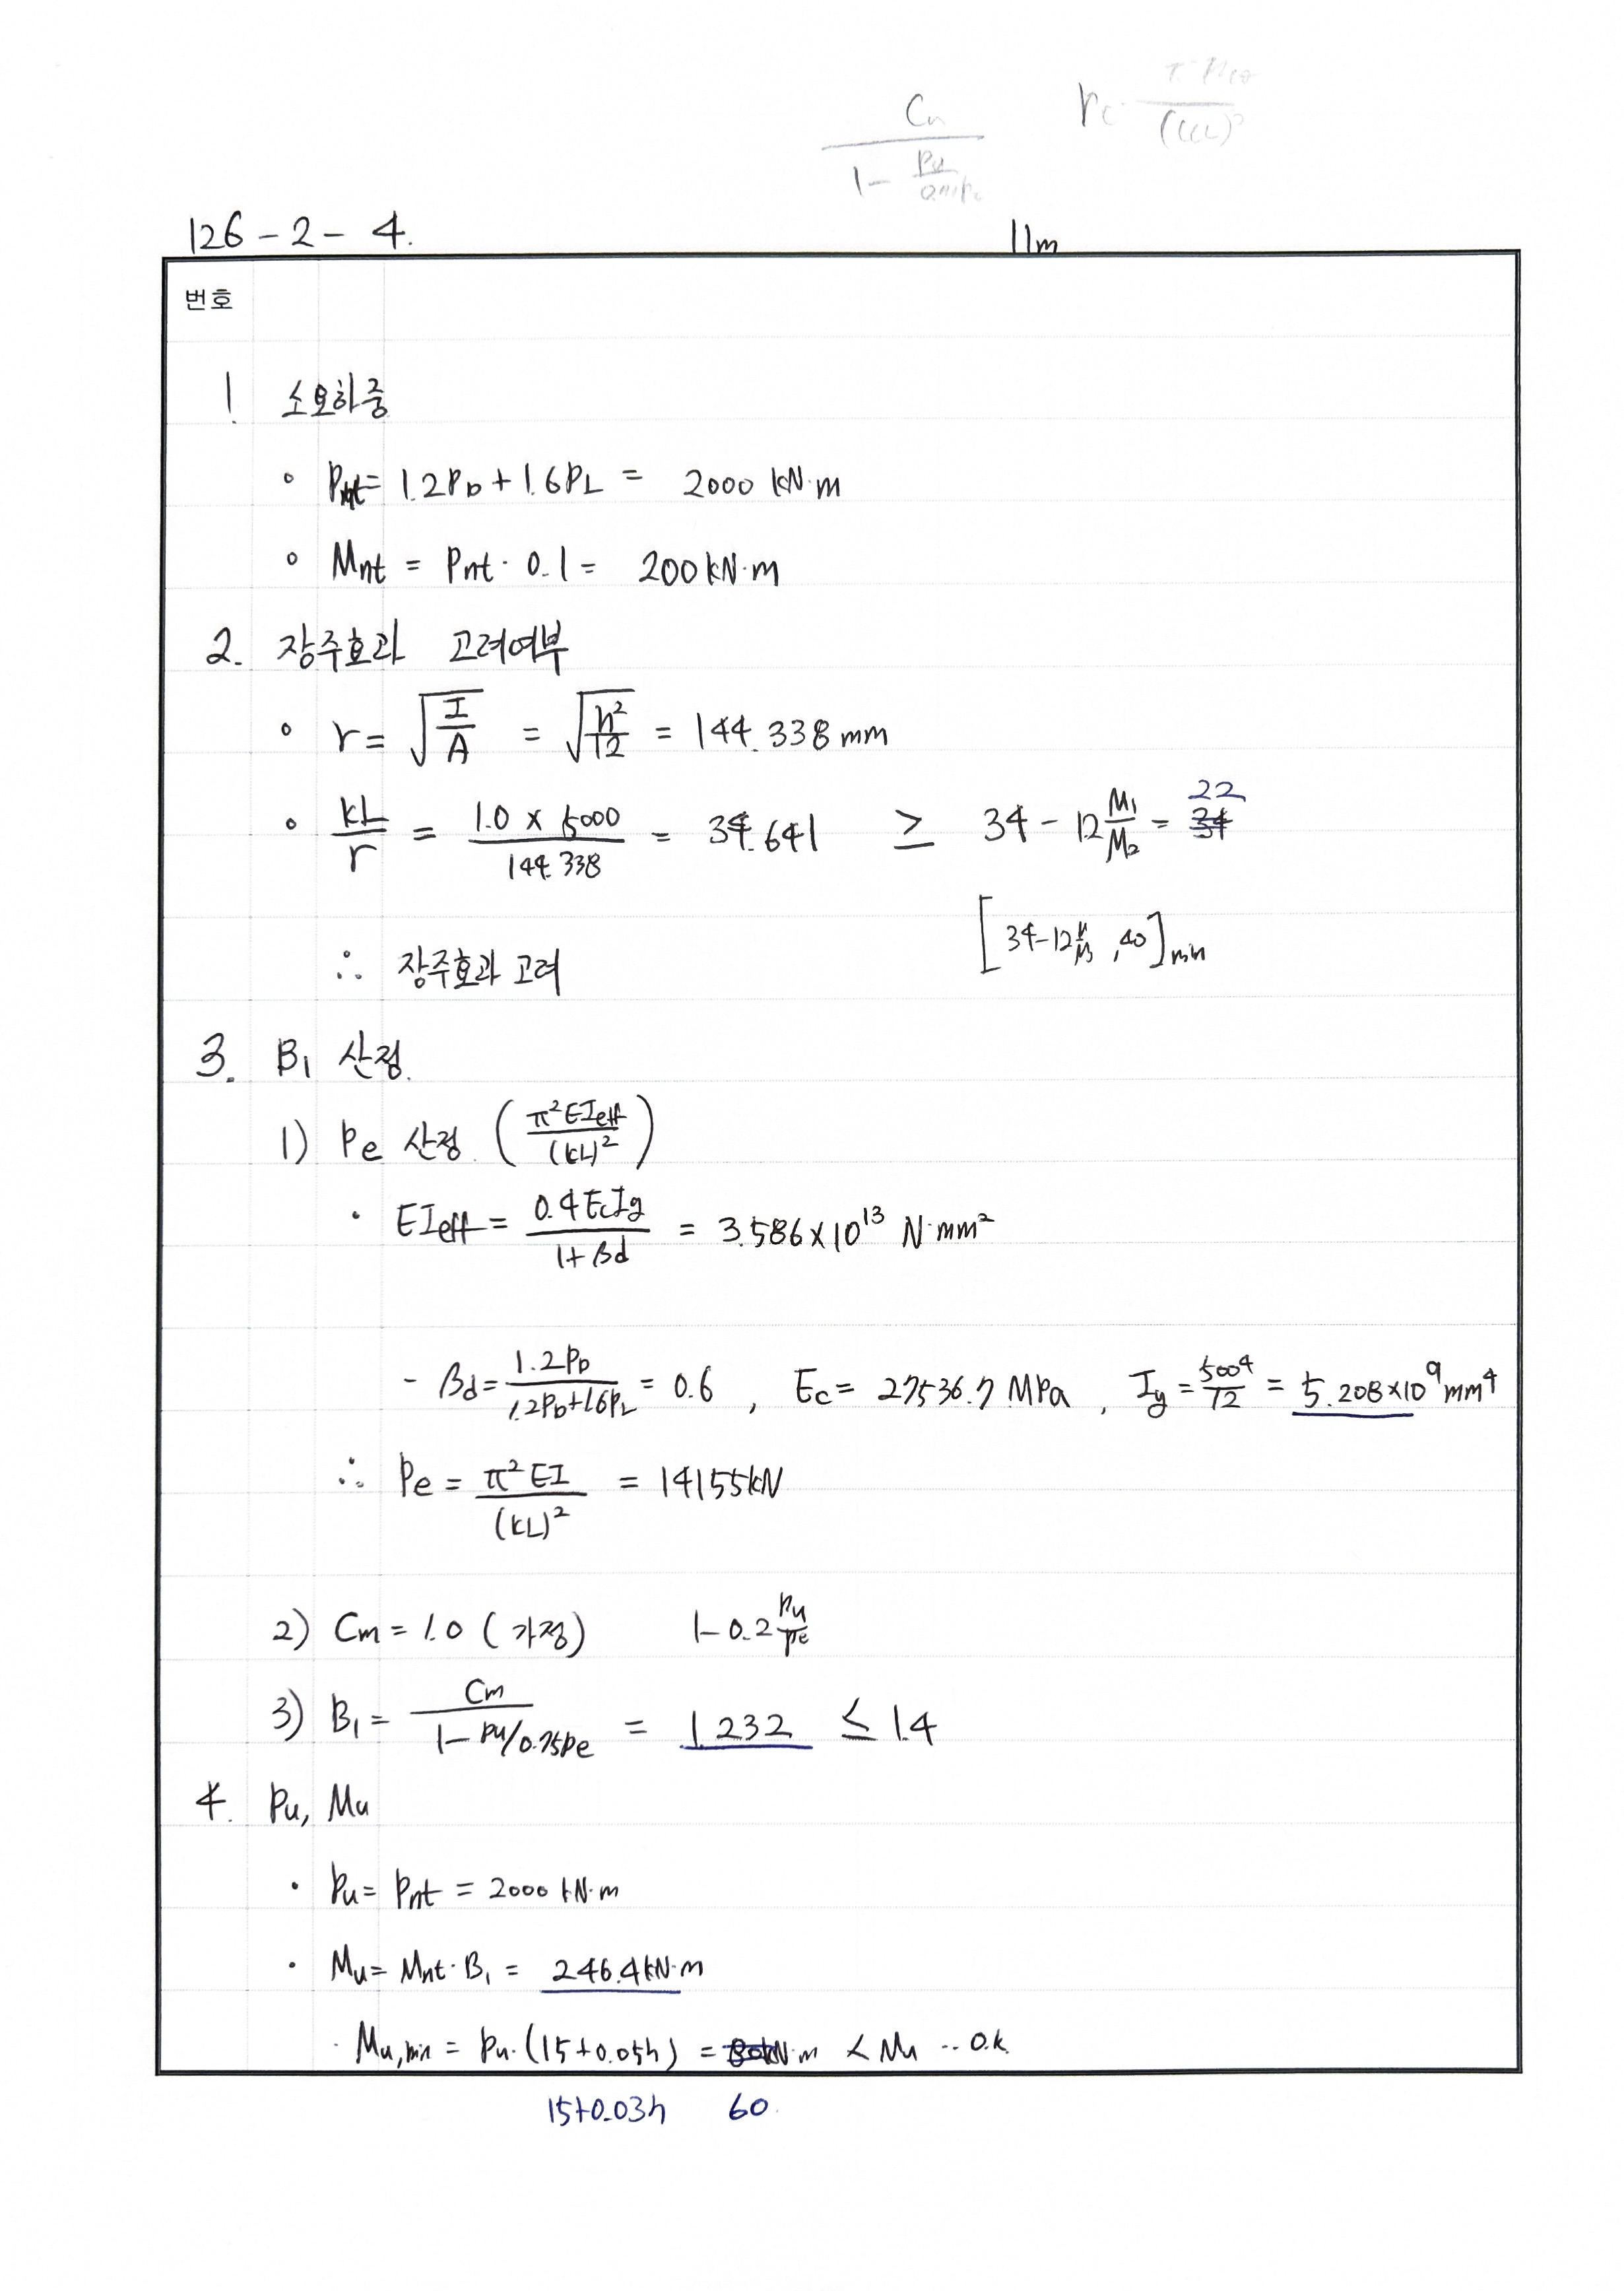 126 - 2 - 4.
11m
번호
1 소요하중
∘ Pnt = 1.2PD + 1.6PL = 2000 kN·m
∘ Mnt = Pnt · 0.1 = 200 kN·m
2. 장주효과 고려여부
∘ r = √(I/A) = √(h²/12) = 144.338 mm
∘ kL/r = (1.0 × 5000)/144.338 = 34.641 ≥ 34 - 12 M1/M2 = 22
[34-12 M/M , 40]min
∴ 장주효과 고려
3. B1 산정.
1) Pe 산정 (π²EIeff/(kL)²)
· EIeff = 0.4EcIg/(1+βd) = 3.586×10¹³ N·mm²
- βd = 1.2PD/(1.2PD+1.6PL) = 0.6 , Ec = 27536.7 MPa , Ig = 500⁴/12 = 5.208×10⁹ mm⁴
∴ Pe = π²EI/(kL)² = 14155kN
2) Cm = 1.0 (가정) 1-0.2 Pu/Pe
3) B1 = Cm/(1-Pu/0.75Pe) = 1.232 ≤ 1.4
4. Pu, Mu
· Pu = Pnt = 2000 kN·m
· Mu = Mnt·B1 = 246.4kN·m
· Mu,min = Pu·(15+0.05h) = kN·m < Mu -- O.k
15+0.03h 60.